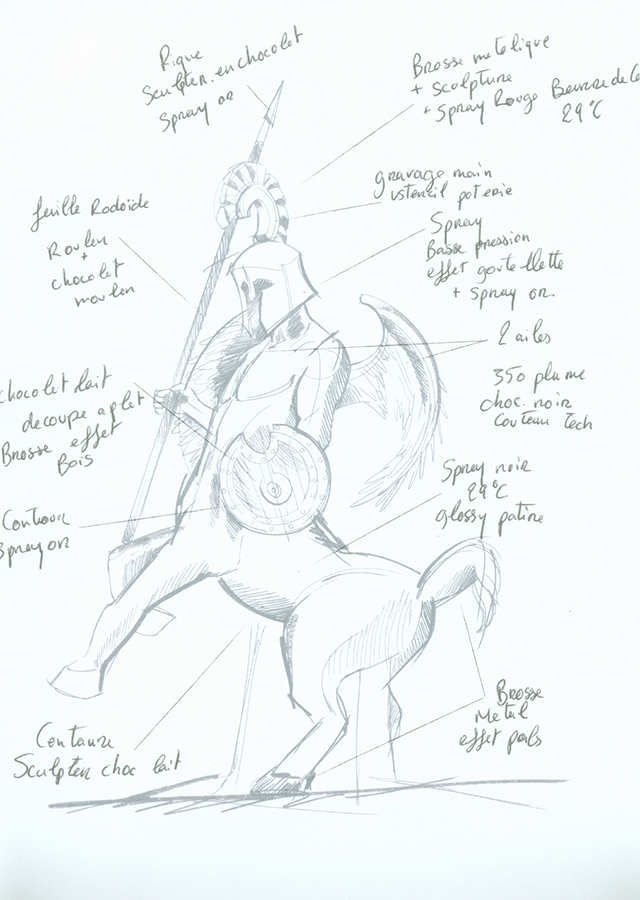 Pique
Sculpter en chocolat
Spray or
Brosse metalique
+ Sculpture
+ Spray Rouge Beurre de
29°C
gravage main
ustencil poterie
Spray
Basse pression
effet goutellette
+ Spray or.
feuille Rodoïde
Rouler
+
chocolat
mouler
2 ailes
350 plume
choc. noir
Couteau tech
chocolat lait
decoupe aplet
Brosse effet
Bois
Spray noir
29°C
glossy patine
Contour
Spray or
Brosse
Metal
effet poils
Centaure
Sculpter choc lait